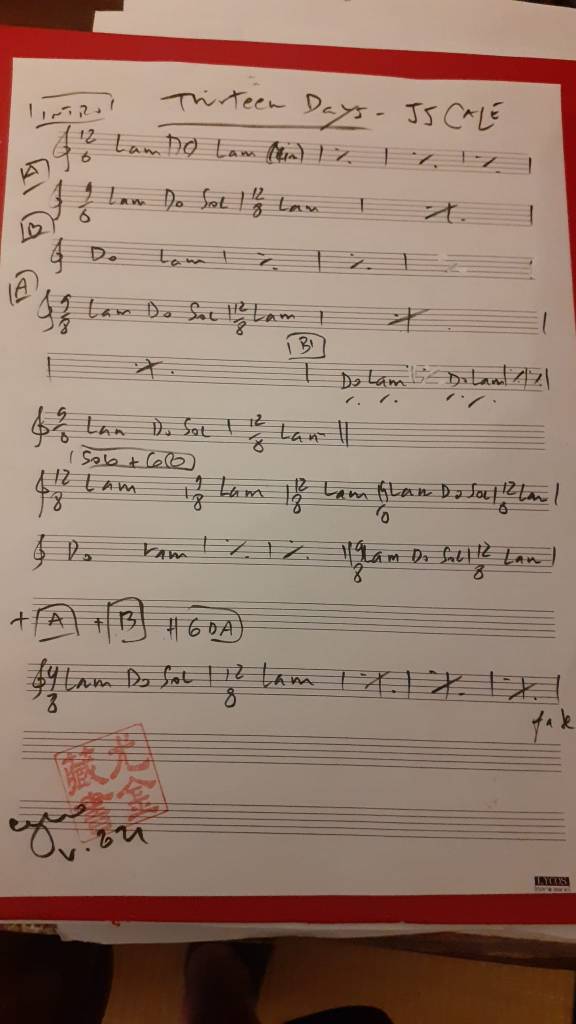 INTRO
Thirteen Days - JJ CALE
12/8 Lam DO Lam | ٪ | ٪ | ٪ |
A
9/8 Lam Do Sol | 12/8 Lam | ٪ |
B
Do Lam | ٪ | ٪ |
A
9/8 Lam Do Sol | 12/8 Lam | ٪ |
B
| ٪ | Do Lam Do Lam | ٪ | ٪ |
9/8 Lam Do Sol | 12/8 Lam ||
Solo + CoD
12/8 Lam | 9/8 Lam | 12/8 Lam | 9/8 Lam Do Sol | 12/8 Lam |
Do Lam | ٪ | ٪ || 9/8 Lam Do Sol | 12/8 Lam |
+ A + B # CODA
9/8 Lam Do Sol | 12/8 Lam | ٪ | ٪ | ٪ |
fade
尤金
藏書
V.021
LYCOS